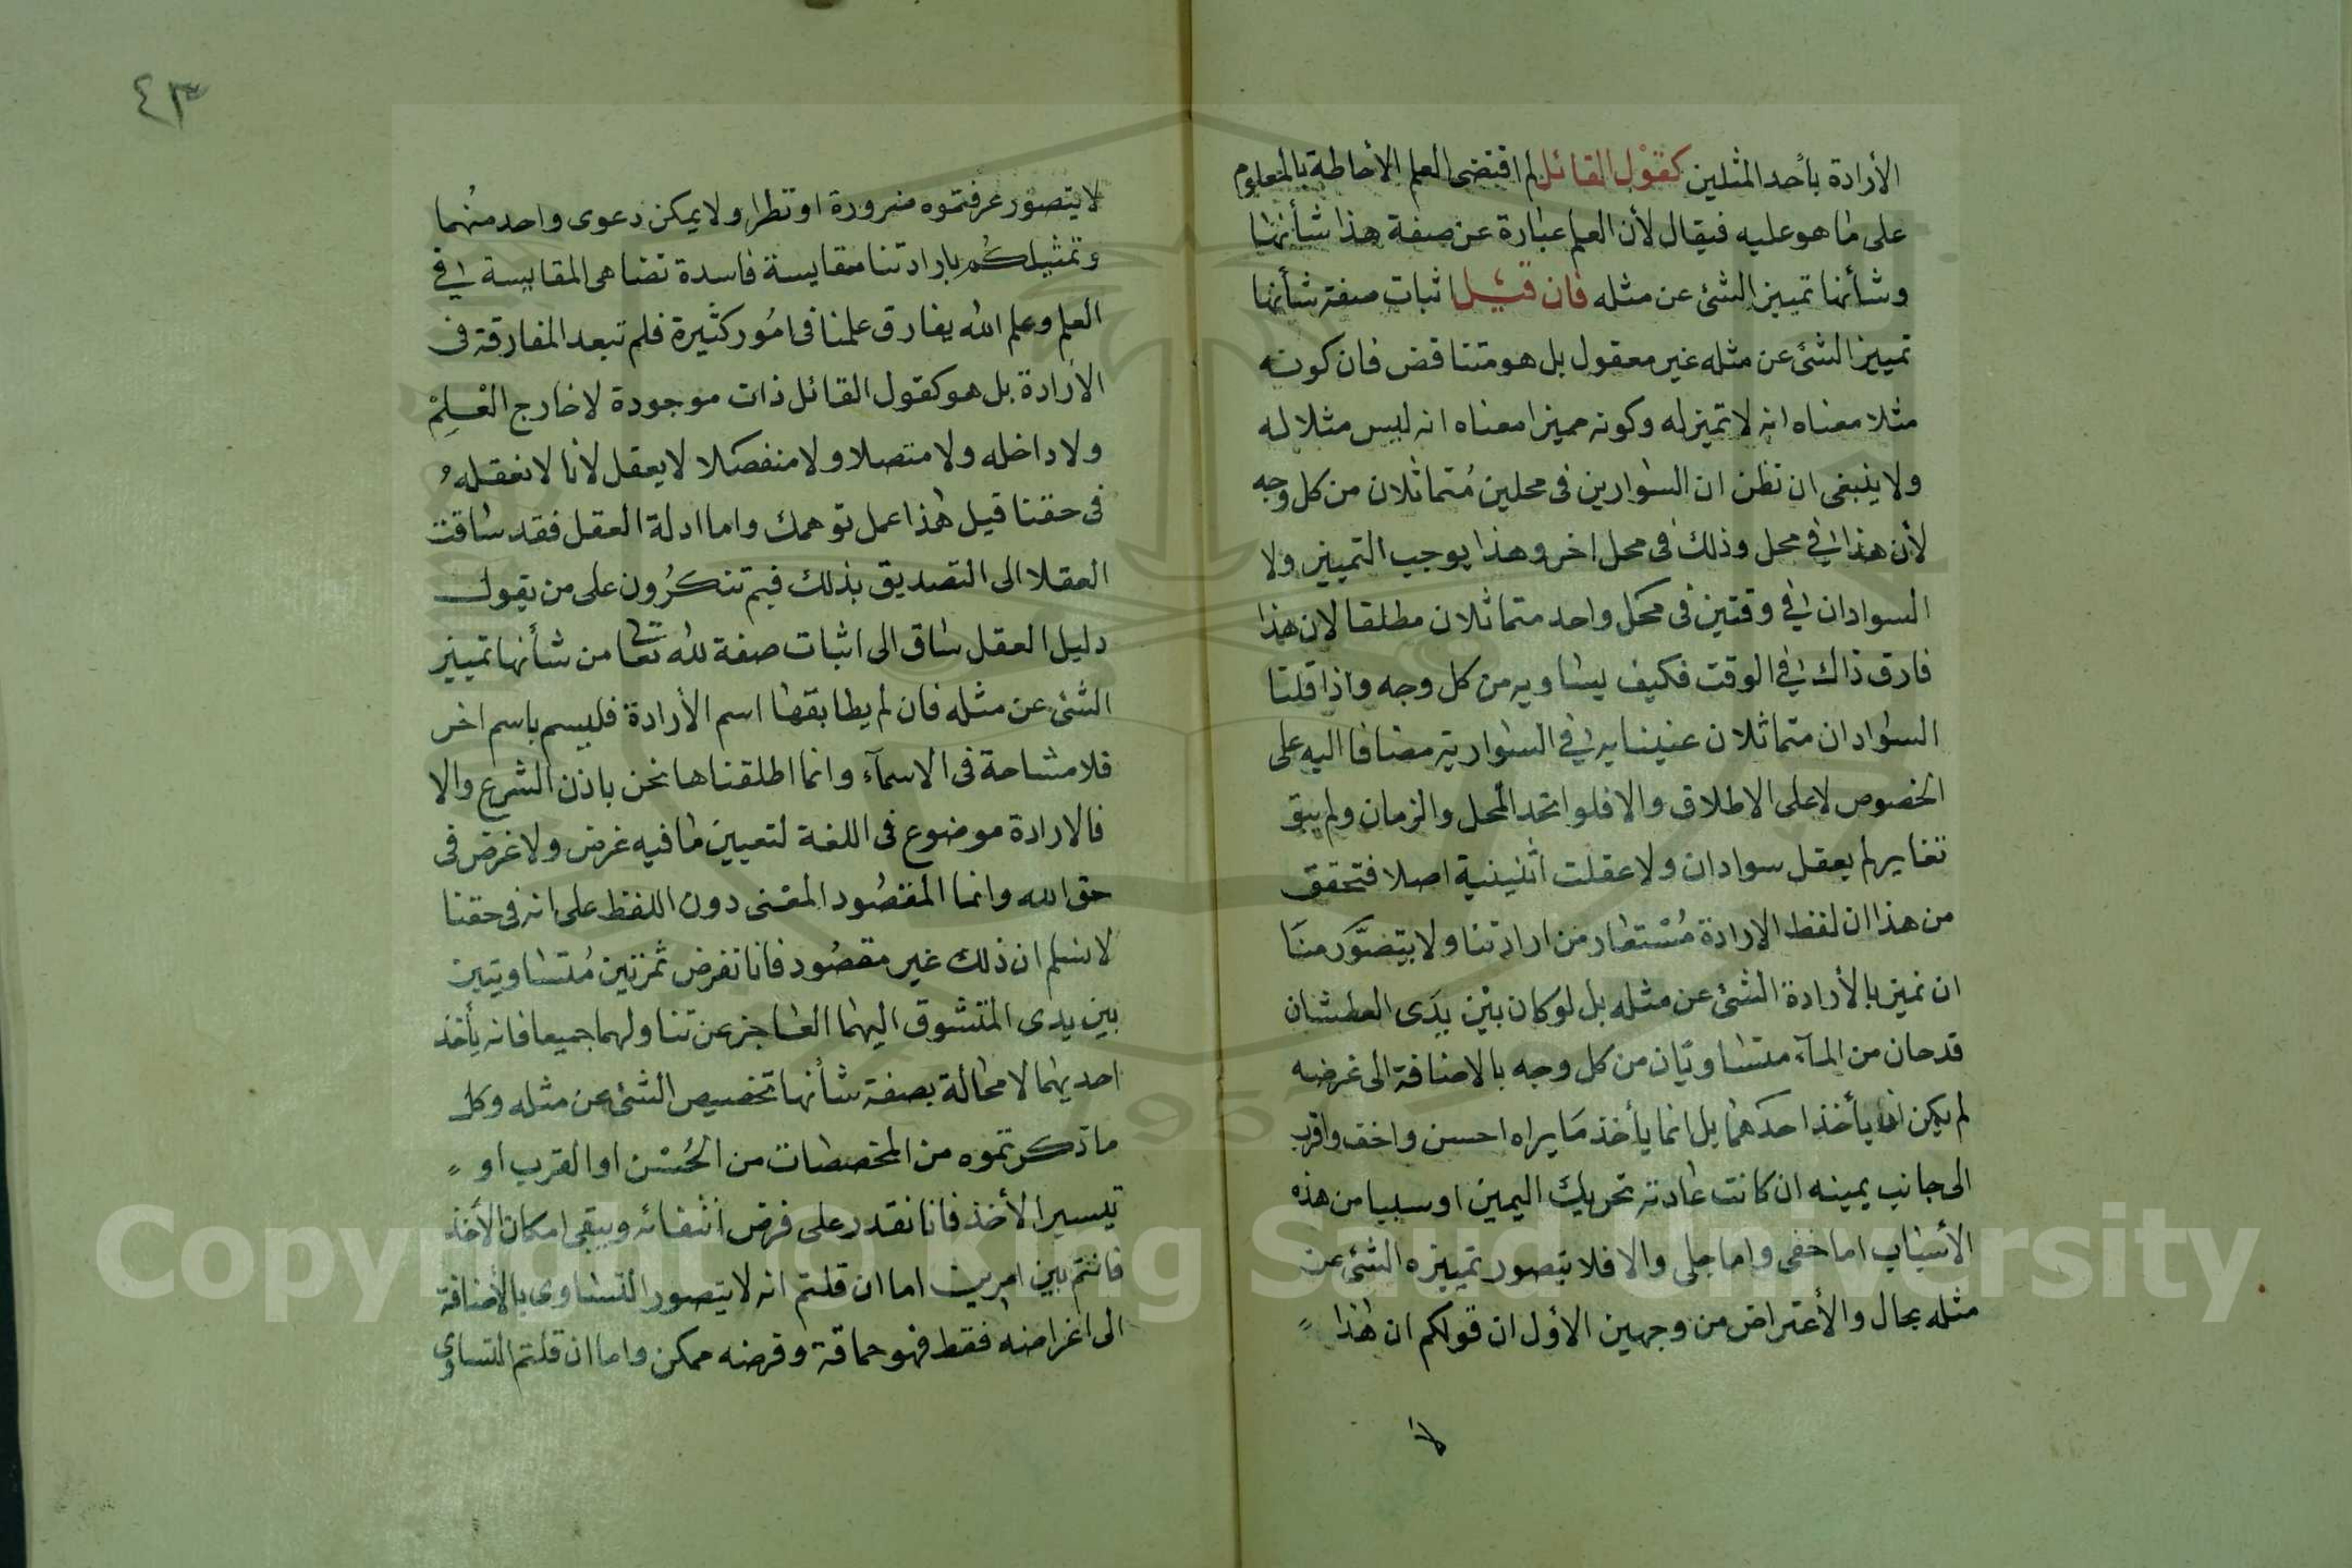 الأرادة بأحد المثلين كقول القائل لم اقتضى العلم الأحاطة بالمعلوم
على ما هو عليه فيقال لأن العلم عبارة عن صفة هذا شأنها
وشأنها تمييز الشئ عن مثله فان قيل اثبات صفة شأنها
تمييز الشئ عن مثله غير معقول بل هو متناقض فان كونه
مثلا معناه انه لا تميز له وكونه مميزا معناه انه ليس مثلا له
ولا ينبغى ان تظن ان السوارين فى محلين متماثلان من كل وجه
لأن هذا فى محل وذلك فى محل اخر وهذا يوجب التمييز ولا
السوادان فى وقتين فى محل واحد متماثلان مطلقا لان هذا
فارق ذاك فى الوقت فكيف يساويه من كل وجه واذا قلنا
السوادان متماثلان عنينا به فى السوارية مضافا اليه على
الخصوص لا على الاطلاق والا فلو اتحد المحل والزمان ولم يبق
تغاير لم يعقل سوادان ولا عقلت اثنينية اصلا فتحقق
من هذا ان لفظ الارادة مستعار من ارادتنا ولا يتصور منا
ان نميز بالأرادة الشئ عن مثله بل لو كان بين يدى العطشان
قدحان من المآء متساويان من كل وجه بالاضافة الى غرضه
لم يكن ان يأخذ احدهما بل انما يأخذ ما يراه احسن واخف واقرب
الى جانب يمينه ان كانت عادته تحريك اليمين او سببا من هذه
الأسباب اما خفى واما جلى والا فلا يتصور تمييزه الشئ عن
مثله بحال والأعتراض من وجهين الأول ان قولكم ان هذا
لا
٤٣
لا يتصور عرفتموه ضرورة او نظرا ولا يمكن دعوى واحد منهما
وتمثيلكم بارادتنا مقايسة فاسدة تضاهى المقايسة فى
العلم وعلم الله يفارق علمنا فى امور كثيرة فلم تبعد المفارقة فى
الأرادة بل هو كقول القائل ذات موجودة لا خارج العلم
ولا داخله ولا متصلا ولا منفصلا لا يعقل لأنا لا نعقله
فى حقنا قيل هذا عمل توهمك واما ادلة العقل فقد ساقت
العقلا الى التصديق بذلك فبم تنكرون على من يقول
دليل العقل ساق الى اثبات صفة لله تعا من شأنها تمييز
الشئ عن مثله فان لم يطابقها اسم الأرادة فليسم باسم اخر
فلا مشاحة فى الاسمآء وانما اطلقناها نحن باذن الشرع والا
فالارادة موضوع فى اللغة لتعيين ما فيه غرض ولا غرض فى
حق الله وانما المقصود المعنى دون اللفظ على انه فى حقنا
لا نسلم ان ذلك غير مقصود فانا نفرض ثمرتين متساويتين
بين يدى المتشوق اليهما العاجز عن تناولهما جميعا فانه يأخذ
احديهما لا محالة بصفة شأنها تخصيص الشئ عن مثله وكل
ما ذكرتموه من المخصصات من الحسن او القرب او
تيسير الأخذ فانا نقدر على فرض انتفائه ويبقى امكان الأخذ
فانتم بين امرين اما ان قلتم انه لا يتصور التساوى بالأضافة
الى اغراضه فقط فهو حماقة وفرضه ممكن واما ان قلتم التساوى